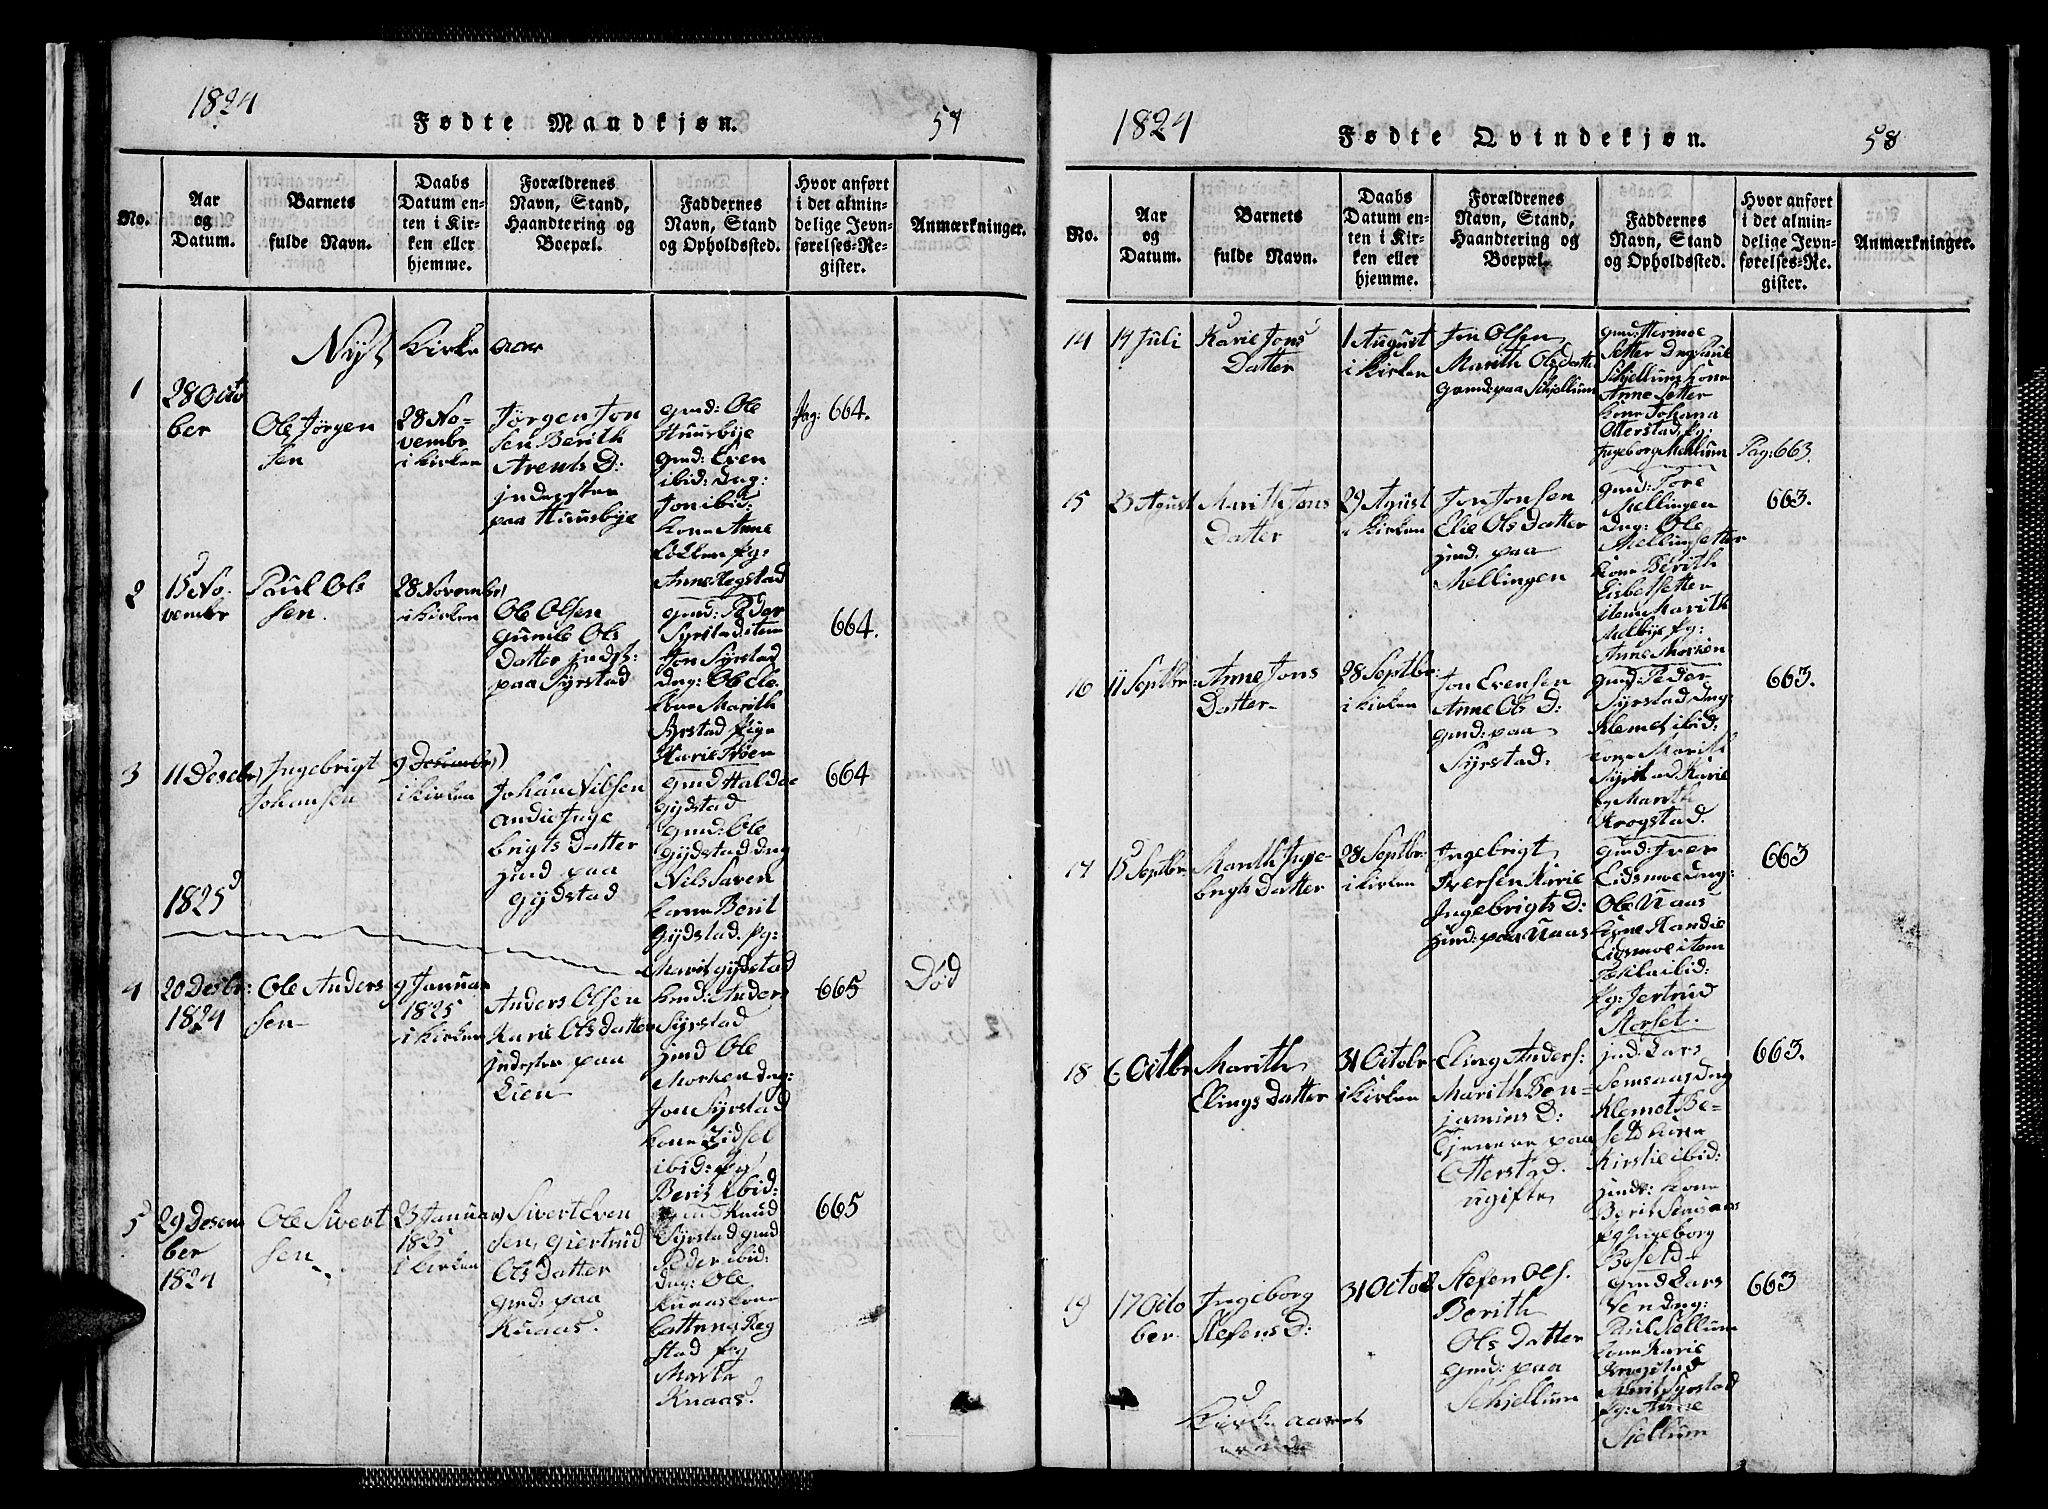 1824
Fødte Mandkjøn.
57
No.
Aar
og
Datum.
Barnets
fulde Navn.
Daabs
Datum en-
ten i Kir-
ken eller
hjemme.
Forældrenes
Navn, Stand,
Haandtering og
Boepæl.
Faddernes
Navn, Stand
og Opholdssted.
Hvor anført
i det almin-
delige Jevn-
førelses-Re-
gister.
Anmærkninger.
Nyt Kirke aar
1
28 Octo
ber
Ole Jørgen
sen
28 No-
vembr
i Kirken
Jørgen Jon
sen Berith
Arents D:
jndersten
paa Huusbye
gmd: Ole
Huusbye
gmd: Even
ibid: dng:
Jon ibid:
kone Anne
Lökken pg:
Anne Regstad
Pag: 664.
2
15 No-
vembr
Paul Ols
sen.
28 Novembr
i Kirken
Ole Olsen
gunild Ols
Datter jndst:
paa Syrstad
gmd: Peder
Syrstad item
Jon Syrstad
dng: Ole ibid:
kone Marith
Syrstad pige
Karie Troen
664.
3
11 Desebr
Ingebrigt
Johansen
9 Desembr
i Kirken
Johan Nilsen
andie Inge
brigts Datter
jnd paa
Gydstad
gmd Haldoe
Gydstad
gmd: Ole
Gydstad dng
Nils Saven
kone Berit
Gydstad. pg:
Marit Gydstad
664
1825
4
20 Desbr:
1824
Ole Anders
sen
9 Januar
1825
i Kirken
Anders Olsen
Karie Ols Datter
jndesten paa
Lien
hmd: Anders
Syrstad
jnd Ole
Morken dng:
Jon Syrstad
kone Zidsel
ibid: pg
Berit ibid:
665
Död
5
29 Desem
ber
1824
Ole Sivert
sen
23 Januar
1825
i Kirken
Sivert Even
sen, giertrud
Ols Datter
gmd: paa
Knaas.
gmd Knud
Syrstad gmd
Peder ibid:
dng: Ole
Knaas kone
Cattrina Reg
stad pg
Marta
Knaas.
665
1824
Fødte Qvindekjøn.
58
No.
Aar
og
Datum.
Barnets
fulde Navn.
Daabs
Datum en-
ten i Kir-
ken eller
hjemme.
Forældrenes
Navn, Stand,
Haandtering og
Boepæl.
Faddernes
Navn, Stand
og Opholdssted.
Hvor anført
i det almin-
delige Jevn-
førelses-Re-
gister.
Anmærkninger.
14
14 Juli
Karie Jons
Datter
1 August
i Kirken
Jon Olsen
Marith Ols datter
gmnd: paa Schjellum
gmd: Hermoe
Setter dng Paul
Schjellum kone
Anne Setter
kone Johana
Otterstad, pg:
Ingeborg Mellum
Pag: 663.
15
23 Agust
Marith Jons
Datter
29 Agust
i Kirken
Jon Jonsen
Elie Ols datter
jnd: paa
Mellingen
gmd: Tore
Mellingen
dng: Ole
Mellumsetter
kone Berith
Lisbetsetter
item Marith
Melbye pg:
Anne Morken
663.
16
11 Septbr:
Anne Jons
Datter
28 Septbr:
i Kirken
Jon Evensen
Anne Ols D:
gmd: paa
Syrstad:
gmd: Peder
Syrstad, dng
Klemet ibid:
cone Marith
Syrstad Karie
og Marith
Krogstad.
663.
17
15 Septbr
Marith Inge-
brigts Datter
28 Septbr:
i Kirken
Ingebrigt
Iversen Karie
Ingebrigts D:
Huud: paa Naas
gmd: Iver
Eidsmoe dng:
Ole Naas
kone Randie
Eidsmoe item
ibid:
pg: Jertrud
Aarset.
663
18
6 Octbr
Marith
Elings Datter
31 Octobr
i Kirken
Eling Anders:
Marith Ben-
jamins D:
tjenere paa
Otterstad.
ugifte
jnd: Lars
Semsaas dng
Klemet Be-
seld kone
Kirstie ibid:
jnds: kone
Berit Semsaas
pg Ingeborg
Beseld
663.
19
17 Octo
ber
Ingeborg
Stefens D:
31 Octob
Stefen Ols.
Berith
Ols Datter
gmd: paa
Schjellum
gmd Lars
Ven dng:
Paul Sellum
kone Karie
Krogstad
Marit Syrstad
pg: Anne
Sjellum
663
Kirke aaret
ende